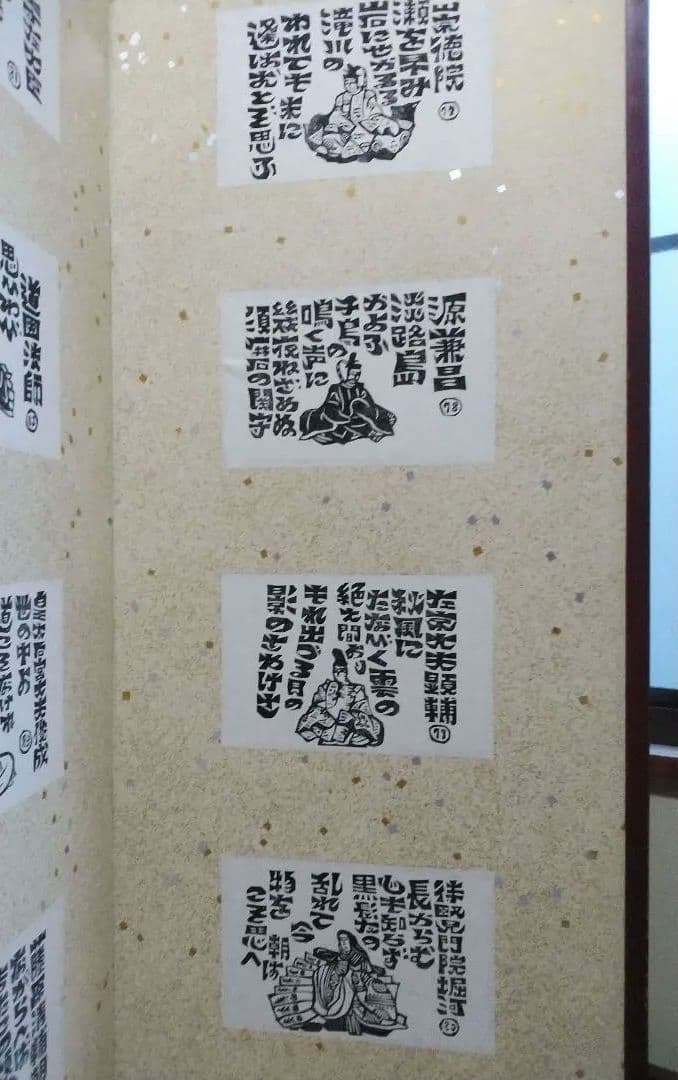 崇徳院 77
瀬を早み
岩にせかるる
滝川の
われても末に
逢はむとぞ思ふ
源兼昌 78
淡路島
かよふ
千鳥の
鳴く声に
幾夜ねざめぬ
須磨の関守
左京大夫顕輔 79
秋風に
たなびく雲の
絶え間より
もれ出づる月の
影のさやけさ
待賢門院堀河 80
長からむ
心も知らず
黒髪の
乱れて
今
朝は
物を
こそ思へ
81
道因法師 82
思ひわび
皇太后宮大夫俊成 83
世の中よ
道こそなけれ
藤原清輔朝臣
ながらへば